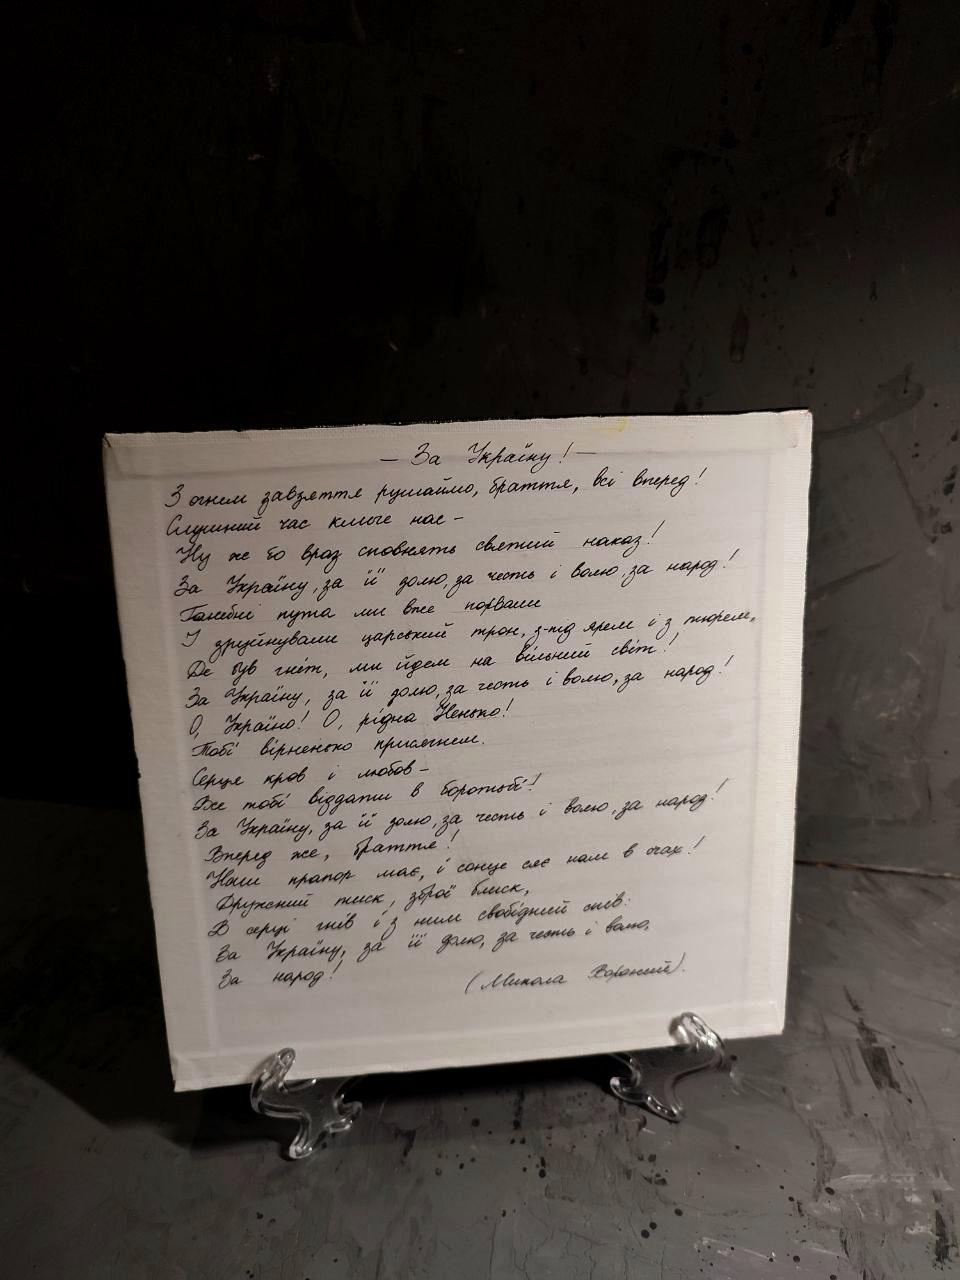 — За Україну! —
З огнем завзяття рушаймо, браття, всі вперед!
Слушний час кличе нас –
Ну же бо враз сповнять святий наказ!
За Україну, за її долю, за честь і волю, за народ!
Ганебні пута ми вже порвали
І зруйнували царський трон, з-під ярем і з тюрем,
Де був гніт, ми йдем на вільний світ!
За Україну, за її долю, за честь і волю, за народ!
О, Україно! О, рідна Ненько!
Тобі вірненько присягнем.
Серця кров і любов –
Все тобі віддати в боротьбі!
За Україну, за її долю, за честь і волю, за народ!
Вперед же, браття!
Наш прапор має, і сонце сяє нам в очах!
Дружний тиск, зброї блиск,
В серці гнів і з ним свобідний спів:
За Україну, за її долю, за честь і волю,
За народ!
(Микола Вороний).